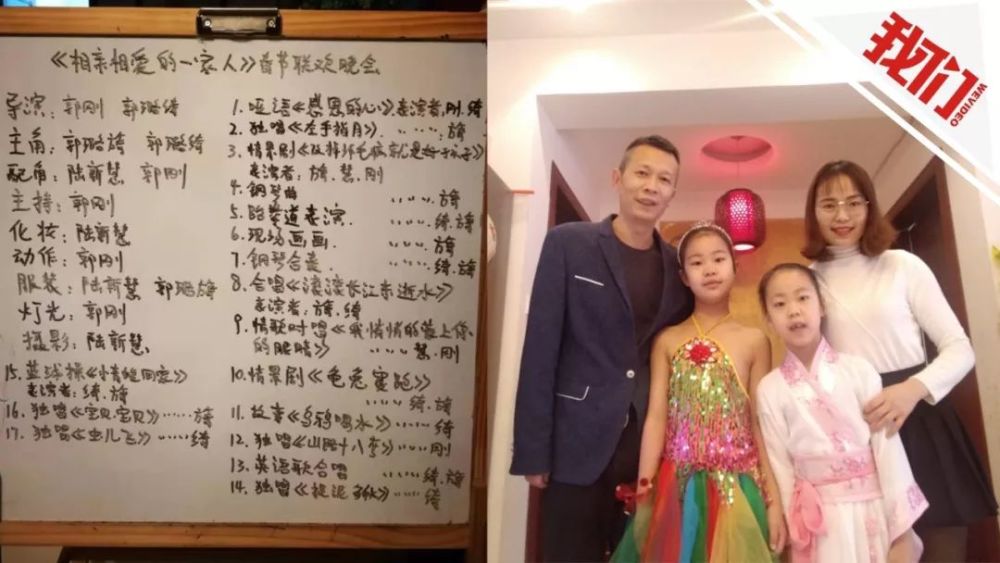 《相亲相爱的一家人》春节联欢晚会
导演：郭刚 郭璐绮
主角：郭璐旖 郭璐绮
配角：陆新慧 郭刚
主持：郭刚
化妆：陆新慧
动作：郭刚
服装：陆新慧 郭璐旖
灯光：郭刚
摄影：陆新慧
15. 篮球操《小青蛙回家》
表演者：绮.旖
16. 独唱《宝贝宝贝》……旖
17. 独唱《虫儿飞》……绮
1. 哑语《感恩的心》表演者，刚.绮
2. 独唱《左手指月》……旖
3. 情景剧《改掉坏毛病就是好孩子》
表演者：旖.慧.刚
4. 钢琴曲 ……旖
5. 跆拳道表演 ……绮.旖
6. 现场画画 ……旖
7. 钢琴合奏 ……绮.旖
8. 合唱《滚滚长江东逝水》
表演者：旖.绮
9. 情歌对唱《我悄悄的蒙上你
的眼睛》 ……慧.刚
10. 情景剧《龟兔赛跑》
……绮.旖
11. 故事《乌鸦喝水》……绮
12. 独唱《山路十八弯》……刚
13. 英语歌合唱 ……绮.旖
14. 独唱《捉泥鳅》……绮
我们
WEVIDEO